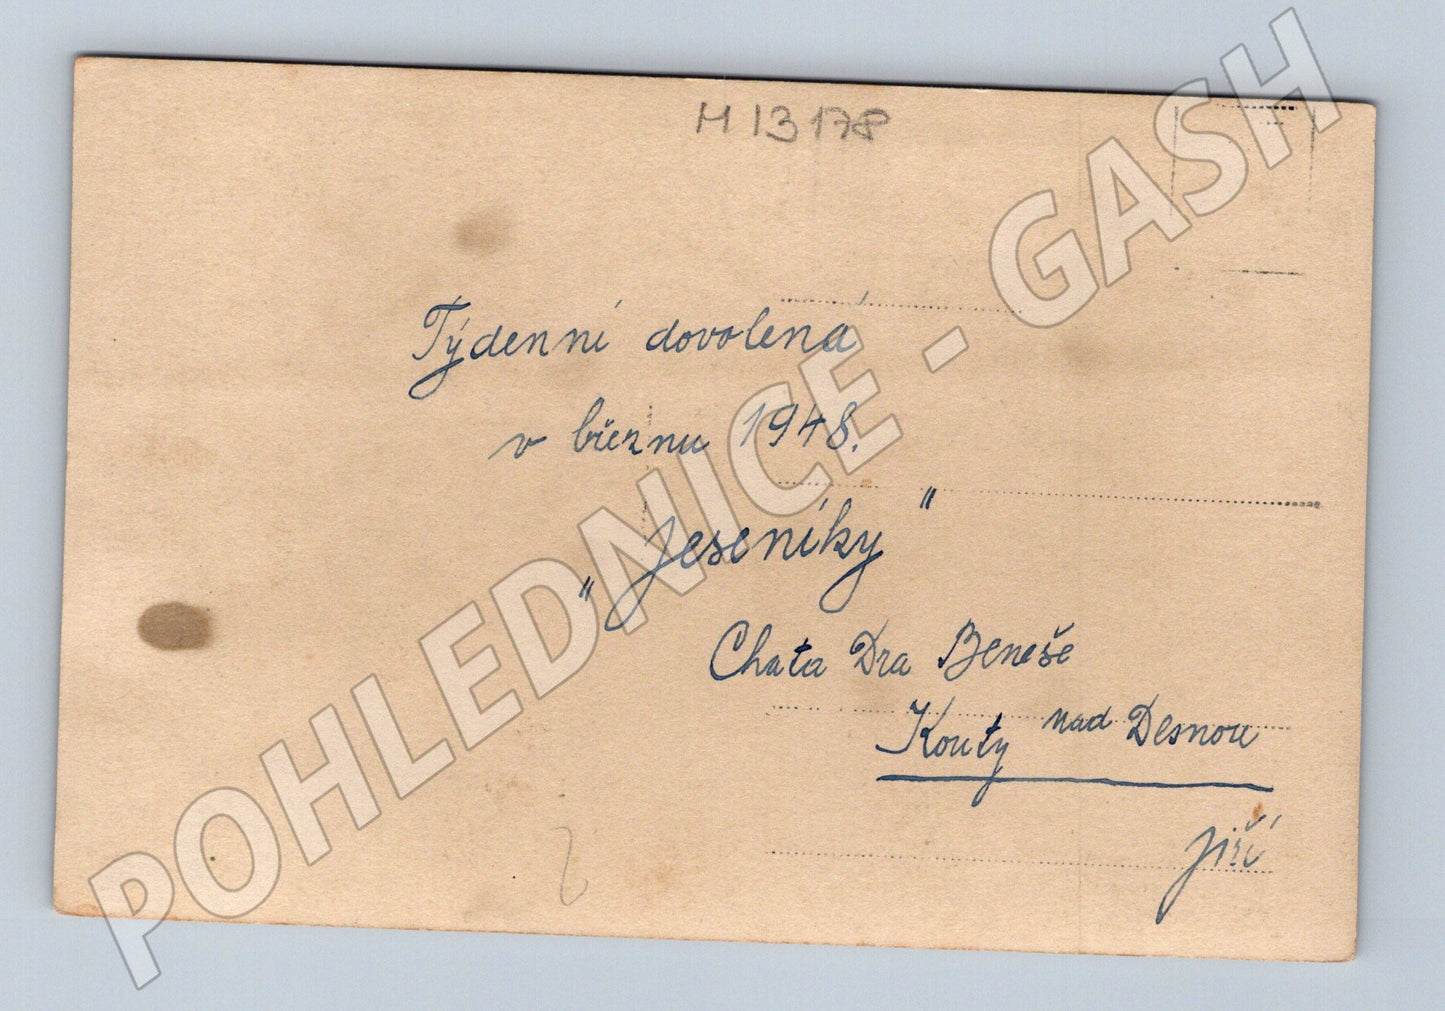 M 13178
Týdenní dovolená
v březnu 1948.
„Jeseníky"
Chata Dra Beneše
Kouty nad Desnou
Jiří
POHLEDNICE - GASH